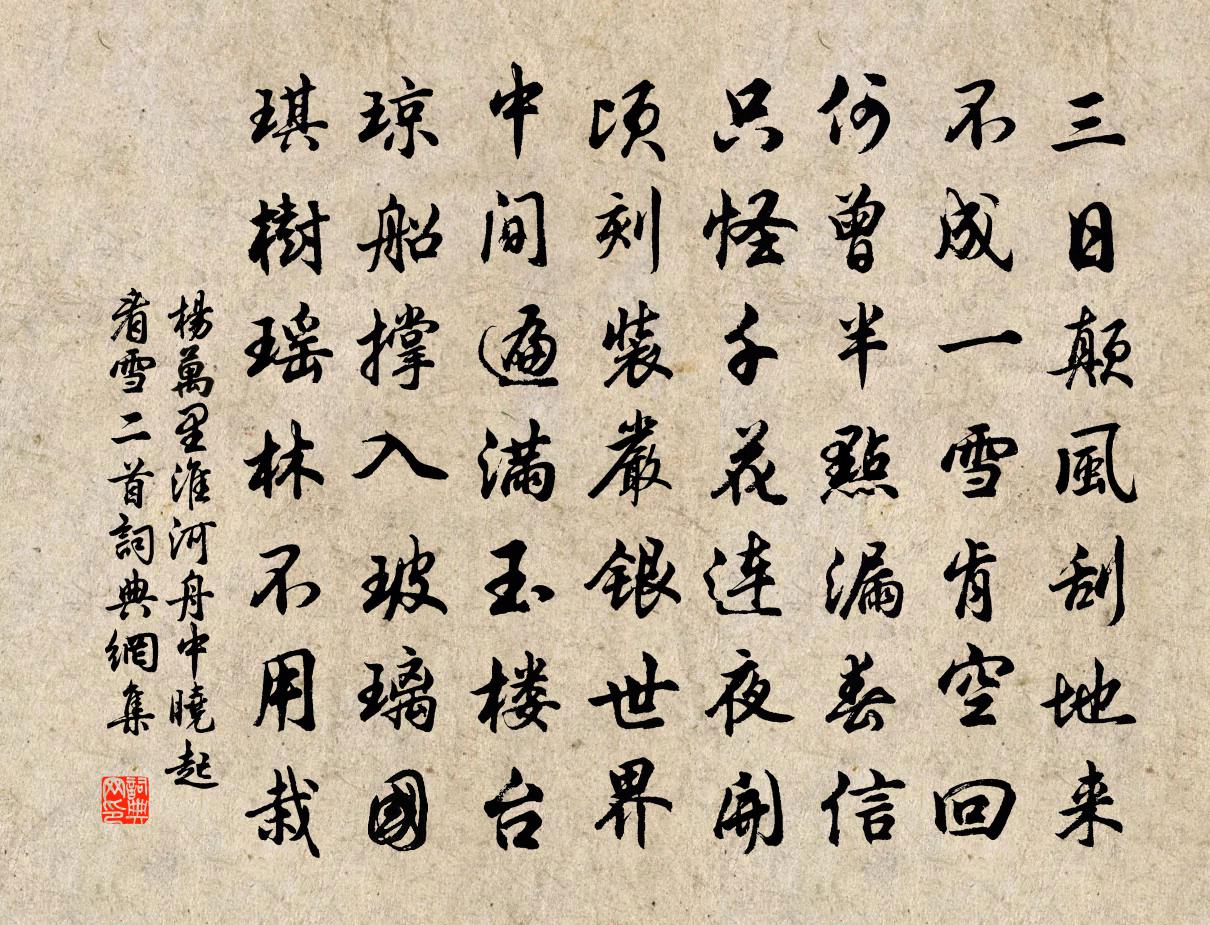 三日颠風刮地来
不成一雪肯空回
何曾半點漏春信
只怪千花连夜開
顷刻裝嚴銀世界
中间遍满玉楼台
琼船撑入玻璃國
琪樹瑶林不用栽
楊萬里淮河舟中曉起
看雪二首詞典網集
詞典网印